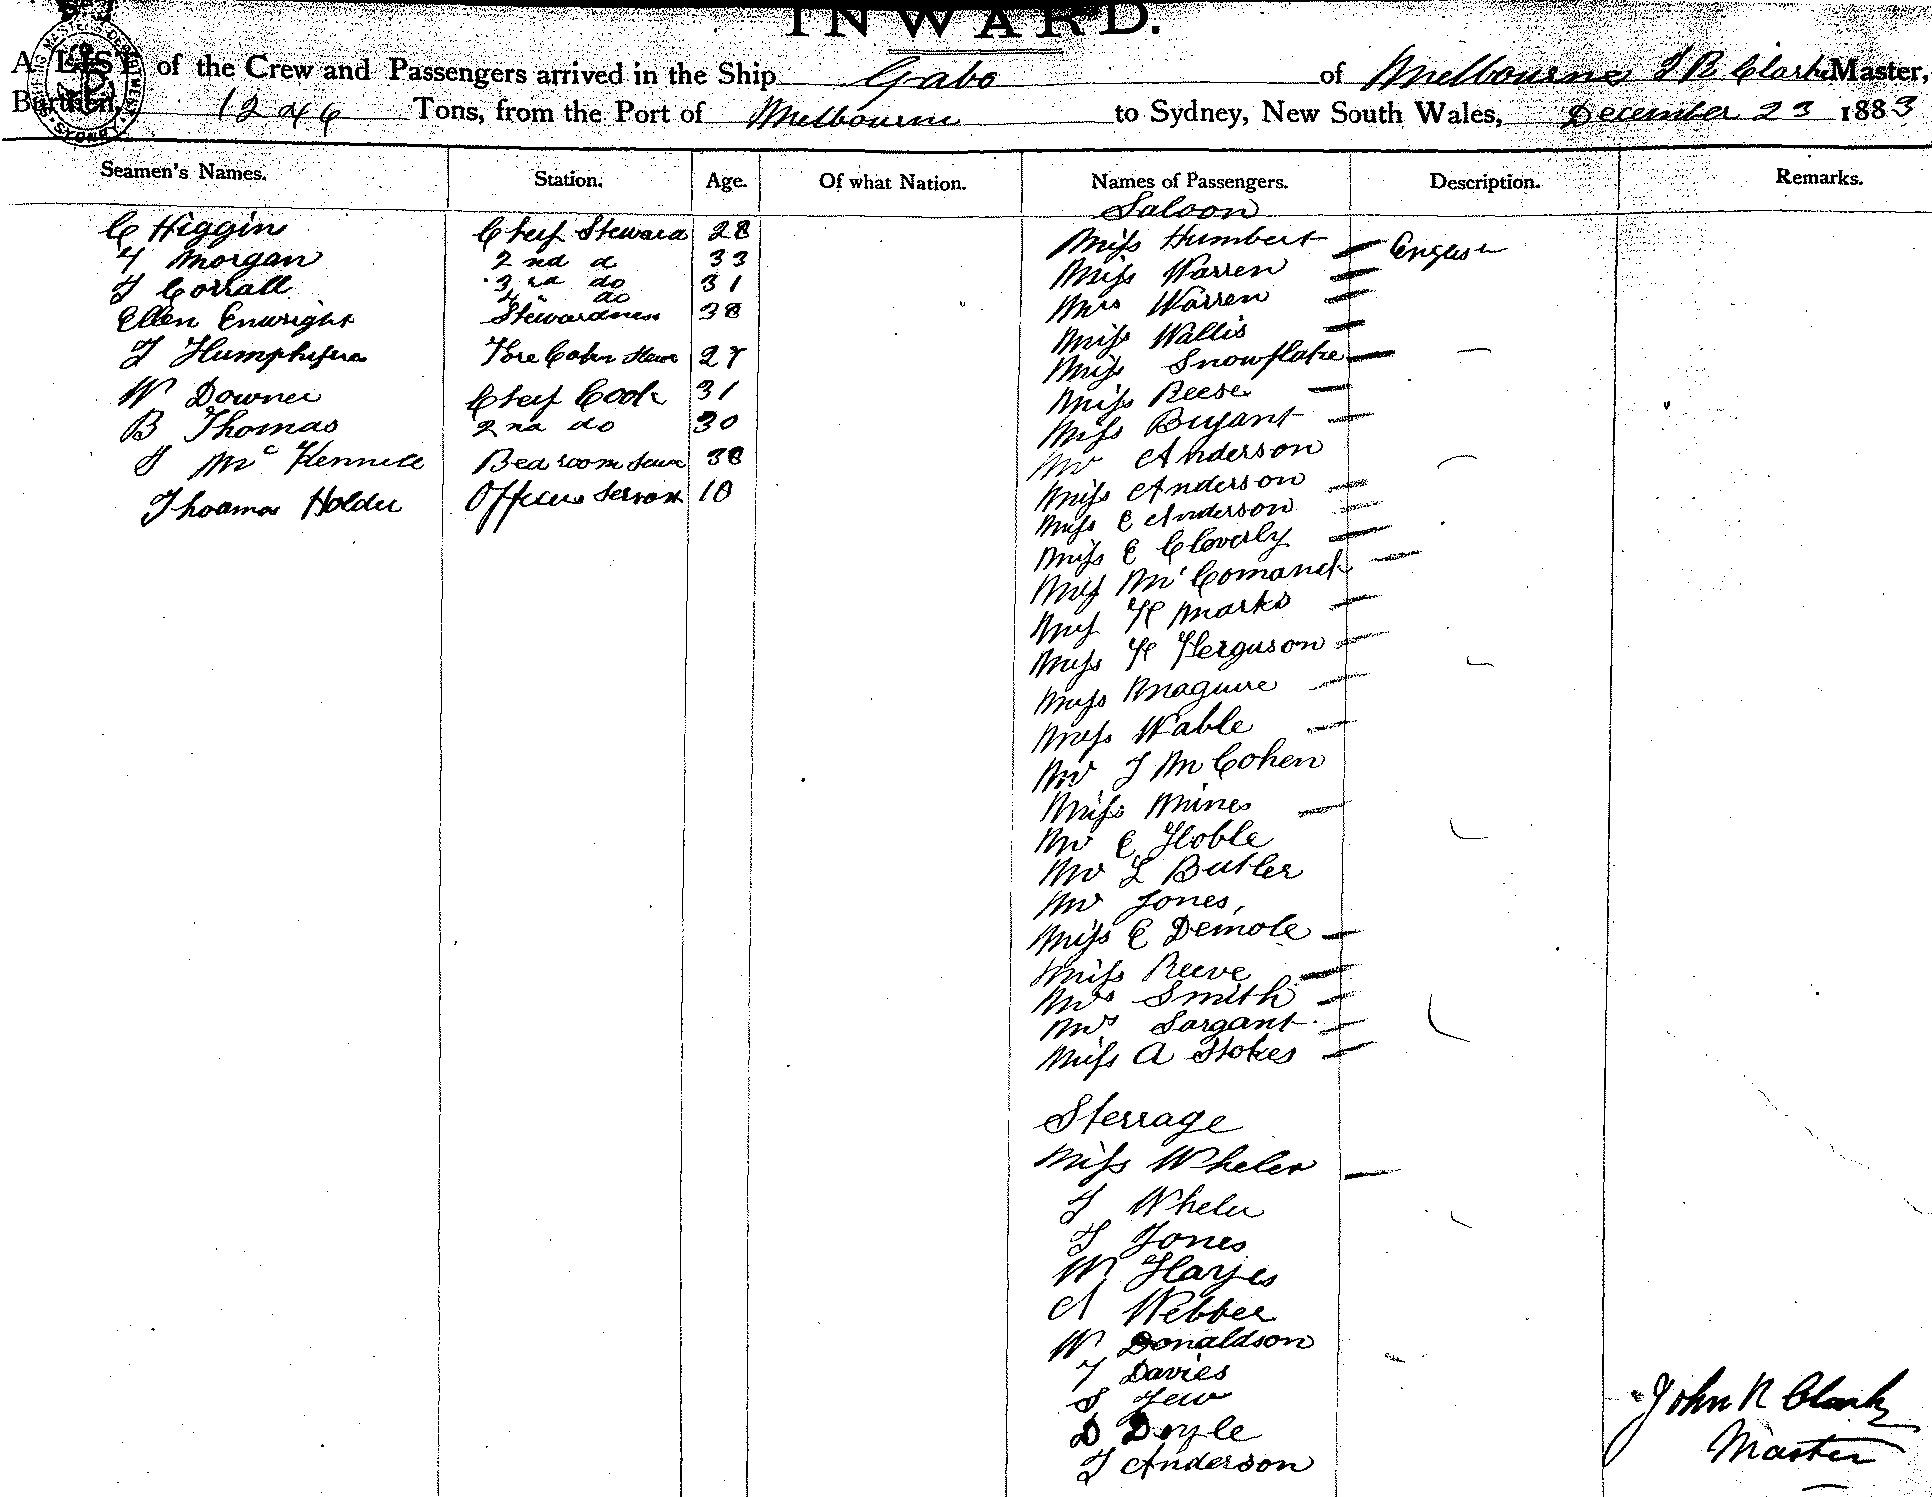 INWARD.
A LIST of the Crew and Passengers arrived in the Ship Gabo of Melbourne J R Clark Master,
Burthen, 1246 Tons, from the Port of Melbourne to Sydney, New South Wales, December 23 1883
Seamen's Names. Station. Age. Of what Nation. Names of Passengers. Description. Remarks.
Saloon
C Higgin Cheif Steward 28 Miss Humbert English
Morgan 2nd d 33 Miss Warren
J Corrall 3rd do 31 Mrs Warren
do
Ellen Enwright Stewardness 38 Miss Wallis
Fore Cabin Stew 27 Miss Snowflake
W Downer Cheif Cook 31 Miss Reese
B Thomas 2nd do 30 Miss Bryant
Mr Anderson
Mc Bedroom Stew 38 Miss Anderson
Thoamas Holder Officers Servant 18 Miss E Anderson
Miss E Cloverly
Miss
Miss H Marks
Miss H Ferguson
Miss Maguire
Miss Wable
Mr J M Cohen
Miss Mines
Mr E Hoble
Mr L Butler
Mr Jones,
Miss E Demole
Miss Reeve
Mrs Smith
Mrs Sargant
Miss A Stokes
Sterrage
Miss Wheler
J Wheler
J Jones
W Hayes
A Webber
W Donaldson
Davies
S
D Doyle
J Anderson
John R Clark
Master